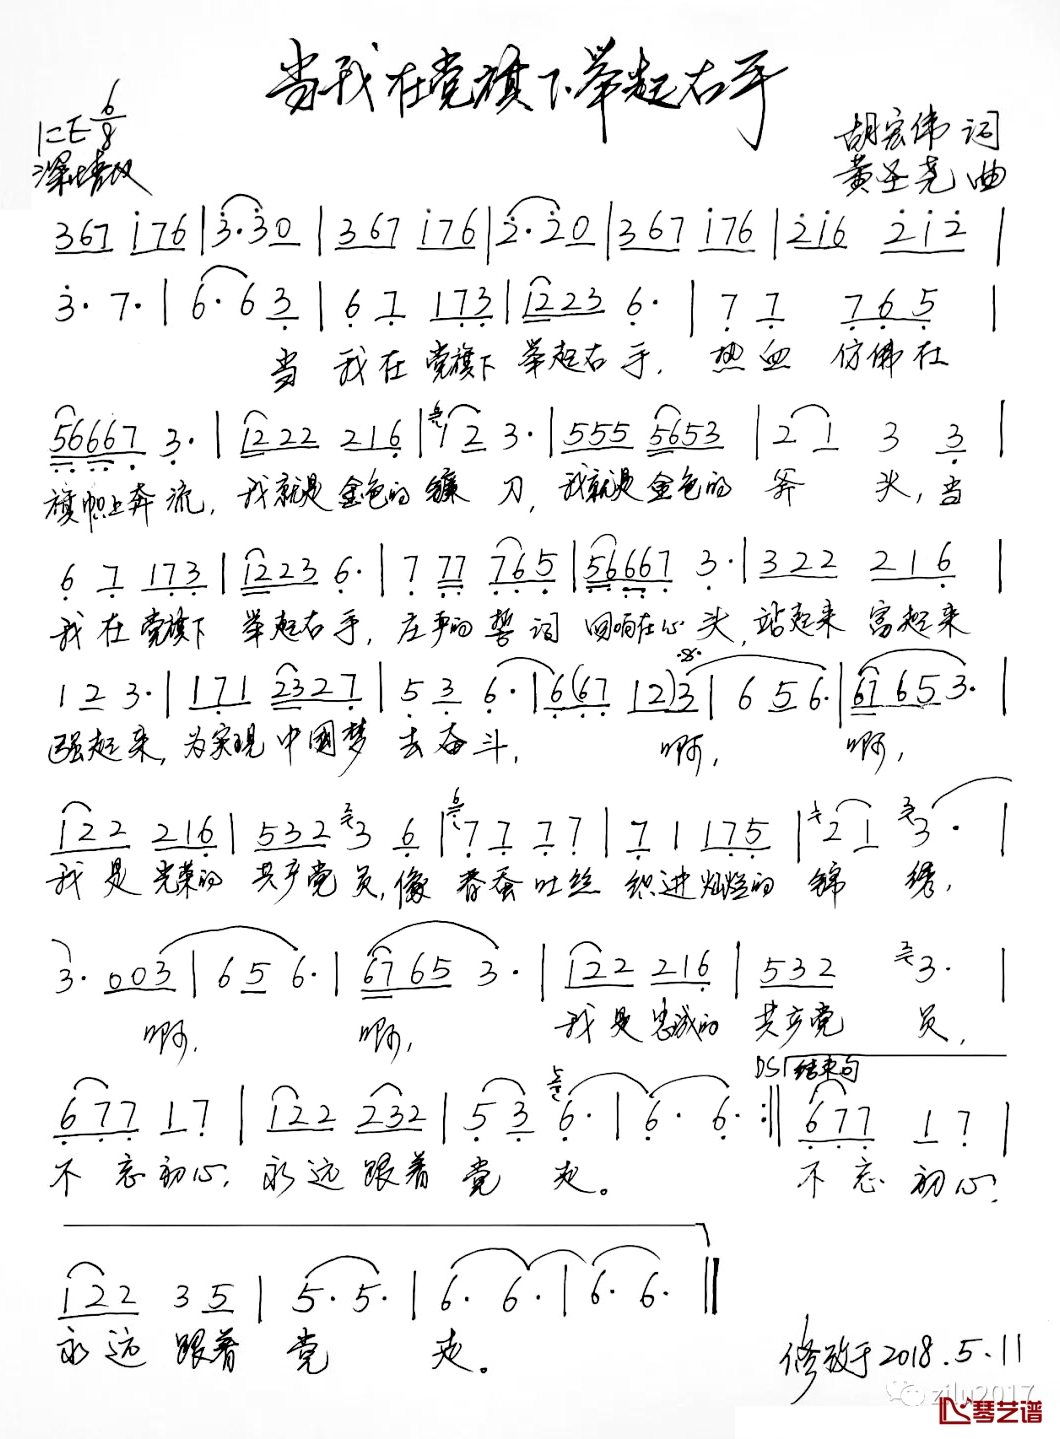 当我在党旗下举起右手
1=E 6/8
深情地
胡宏伟 词
黄圣尧 曲
367 176 | 3·30 | 367 176 | 2·20 | 367 176 | 216 212 |
3· 7· | 6· 6 3 | 6 7 173 | 1223 6· | 7 7 765 |
当 我在党旗下 举起右手, 热血 仿佛在
56667 3· | 1222 216 | 12 3· | 555 5653 | 2 1 3 3 |
旗帜上奔流, 我就是金色的镰 刀, 我就是金色的 斧 头, 当
6 7 173 | 1223 6· | 7 77 765 | 56667 3· | 322 216 |
我在党旗下 举起右手, 庄严的誓词 回响在心头, 站起来 富起来
1 2 3· | 171 2327 | 5 3 6· | 6(67 12)3 | 6 5 6· | 67 65 3· |
强起来, 为实现中国梦 去奋斗, 啊, 啊,
122 216 | 532 3 6 | 7 7 7 7 | 7 1 175 | 2 1 3· |
我是光荣的 共产党员, 像 春蚕吐丝 织进灿烂的 锦 绣,
3· 003 | 6 5 6· | 67 65 3· | 122 216 | 532 3· |
啊, 啊, 我是忠诚的 共产党 员,
DS 结束句
677 17 | 122 232 | 5 3 6· | 6· 6· :‖ 677 1 7 |
不忘初心, 永远跟着 党 走。 不忘 初心,
122 3 5 | 5· 5· | 6· 6· | 6· 6· ‖
永远 跟着 党 走。
修改于2018.5.11
zilu2017
琴艺谱